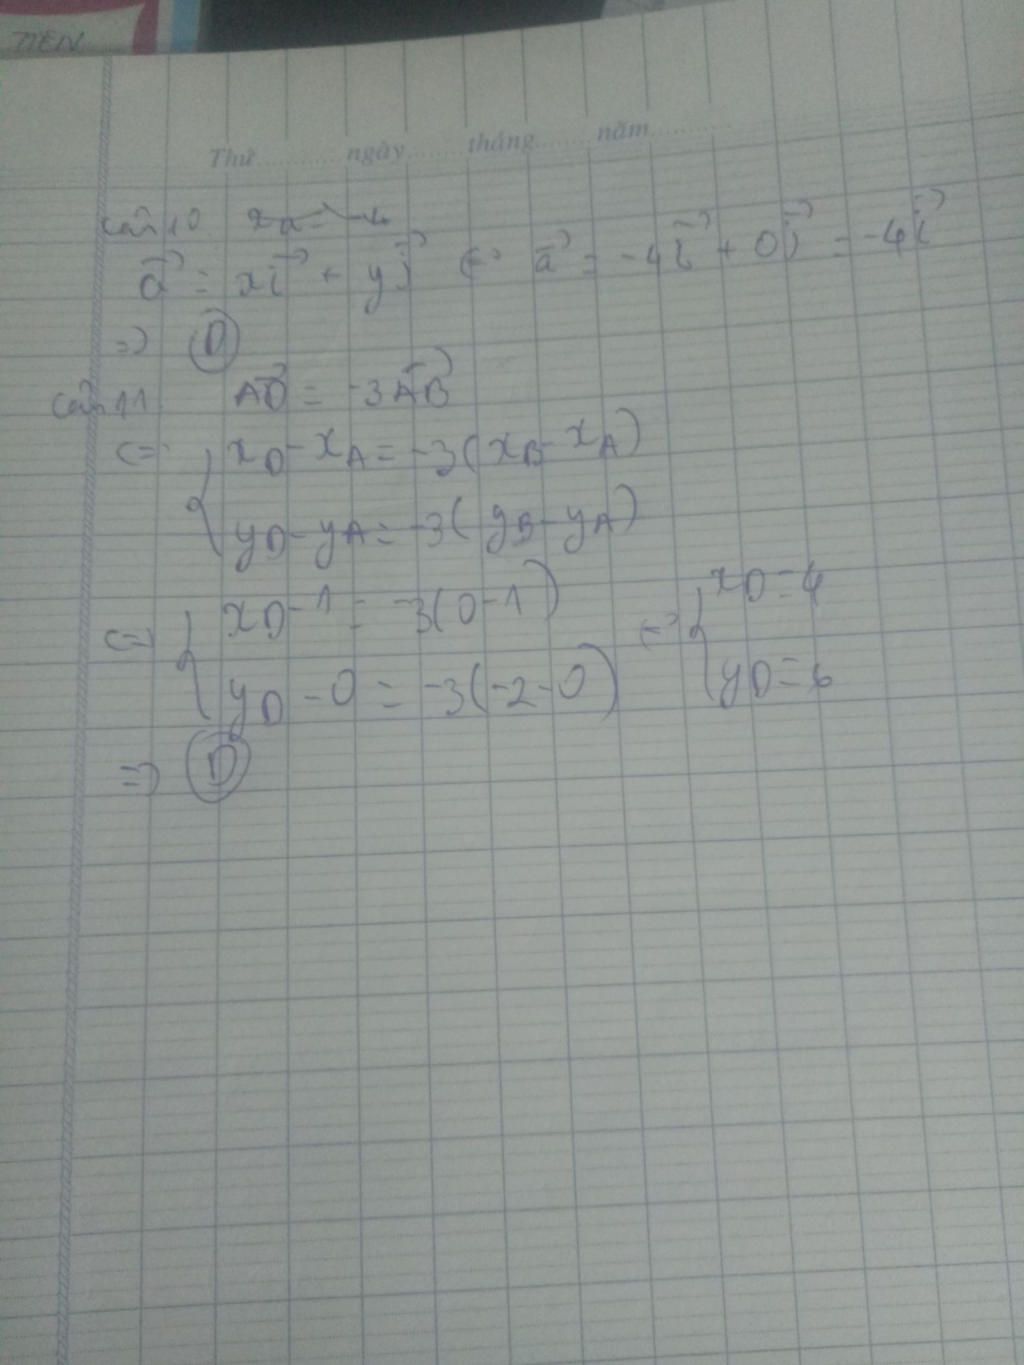 TIEN
Thứ ngày tháng năm
Câu 10
a⃗ = xi⃗ + yj⃗ <=> a⃗ = -4i⃗ + 0j⃗ = -4i⃗
=> D
Câu 11 AD⃗ = -3AB⃗
<=> { xD - xA = -3(xB - xA)
yD - yA = -3(yB - yA)
<=> { xD - 1 = -3(0 - 1) <=> { xD = 4
yD - 0 = -3(-2 - 0) yD = 6
=> D